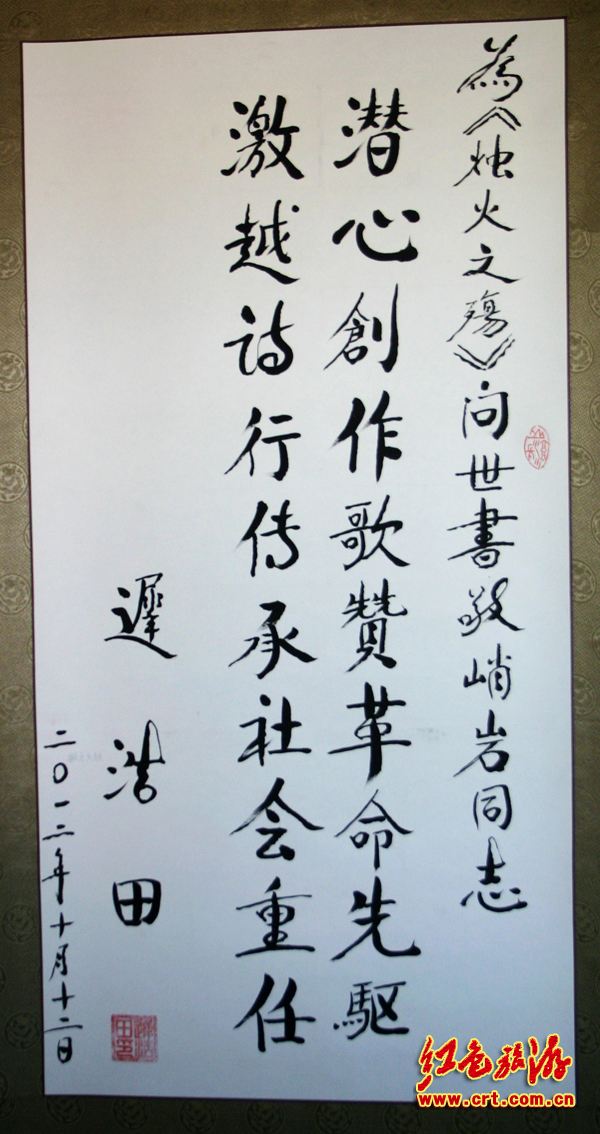 為《烛火之殇》问世書敬峭岩同志
潜心創作歌赞革命先驱
激越诗行传承社会重任
遲浩田
二〇一二年十月十二日
红色旅游
www.crt.com.cn